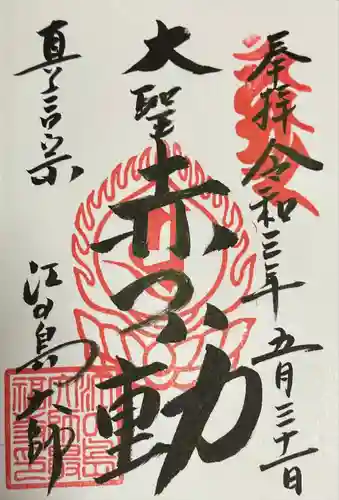 奉拝 令和三年 五月三十一日
大聖赤不動
真言宗
江の島大師